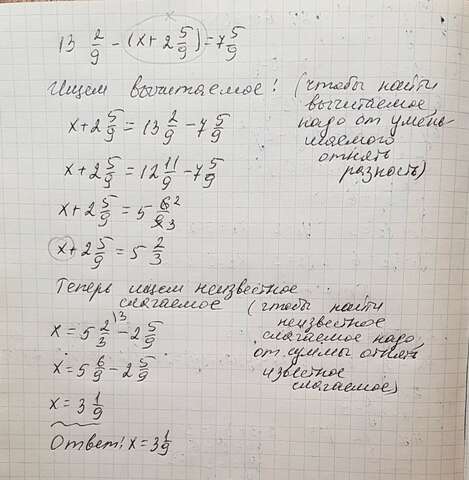 13 2/9 - (x + 2 5/9) = 7 5/9
Ищем вычитаемое! (чтобы найти
вычитаемое,
надо от умень-
шаемого
отнять
разность)
x + 2 5/9 = 13 2/9 - 7 5/9
x + 2 5/9 = 12 11/9 - 7 5/9
x + 2 5/9 = 5 6/9 2 3
x + 2 5/9 = 5 2/3
Теперь ищем неизвестное
слагаемое (чтобы найти
неизвестное
слагаемое надо,
от суммы отнять
известное
слагаемое)
x = 5 2/3 \3 - 2 5/9
x = 5 6/9 - 2 5/9
x = 3 1/9
Ответ: x = 3 1/9